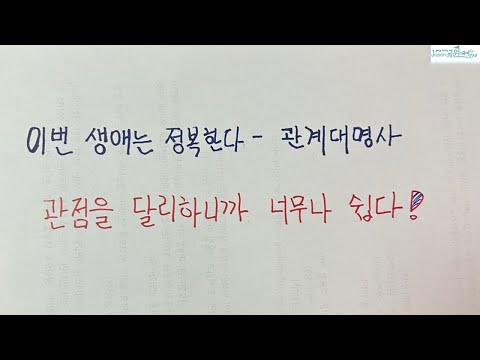 이번 생애는 정복한다 - 관계대명사
관점을 달리하니까 너무나 쉽다!